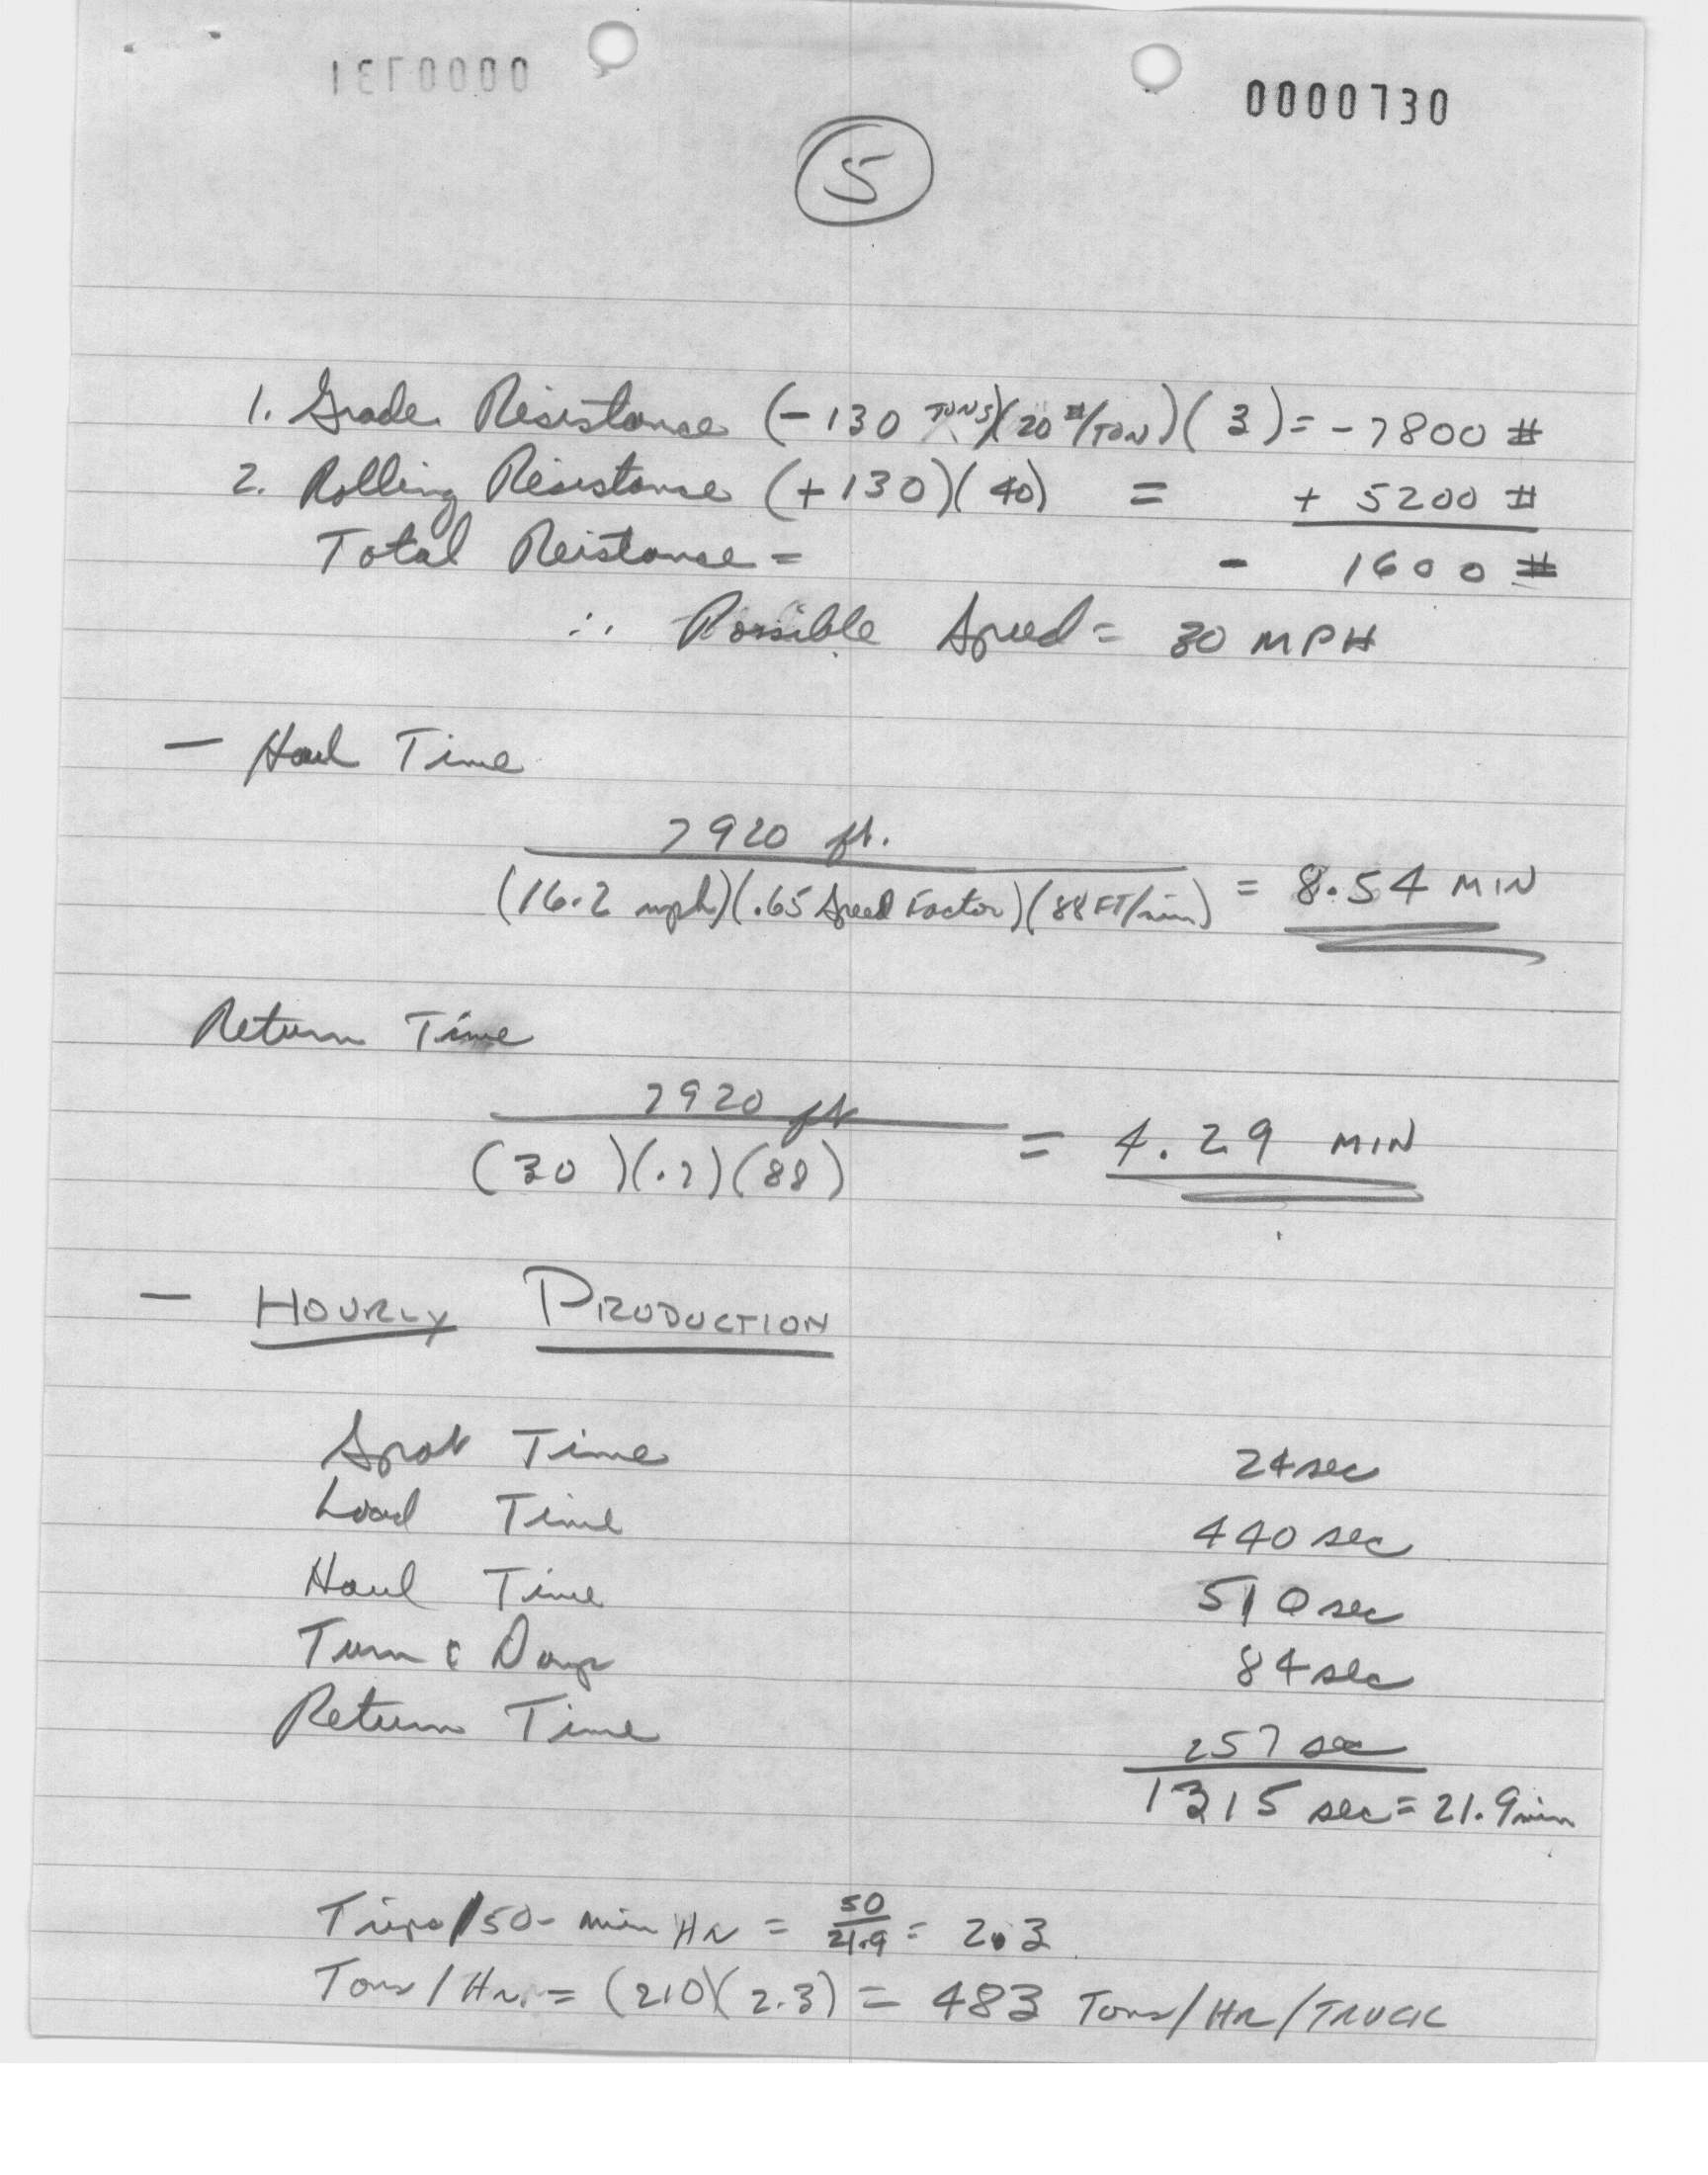 0000730
5
1. Grade Resistance (-130 TONS)(20 #/TON)(3) = -7800 #
2. Rolling Resistance (+130)(40) = + 5200 #
Total Reistance = - 1600 #
∴ Possible Speed = 30 MPH
— Haul Time
7920 ft.
(16.2 mph)(.65 Speed Factor)(88 FT/min) = 8.54 MIN
Return Time
7920 ft
(30)(.7)(88) = 4.29 MIN
— HOURLY PRODUCTION
Spot Time 24 sec
Load Time 440 sec
Haul Time 510 sec
Turn & Dump 84 sec
Return Time 257 sec
1315 sec = 21.9 min
Trips/50-min Hr = 50/21.9 = 2.3
Tons/Hr. = (210)(2.3) = 483 Tons/HR/TRUCK